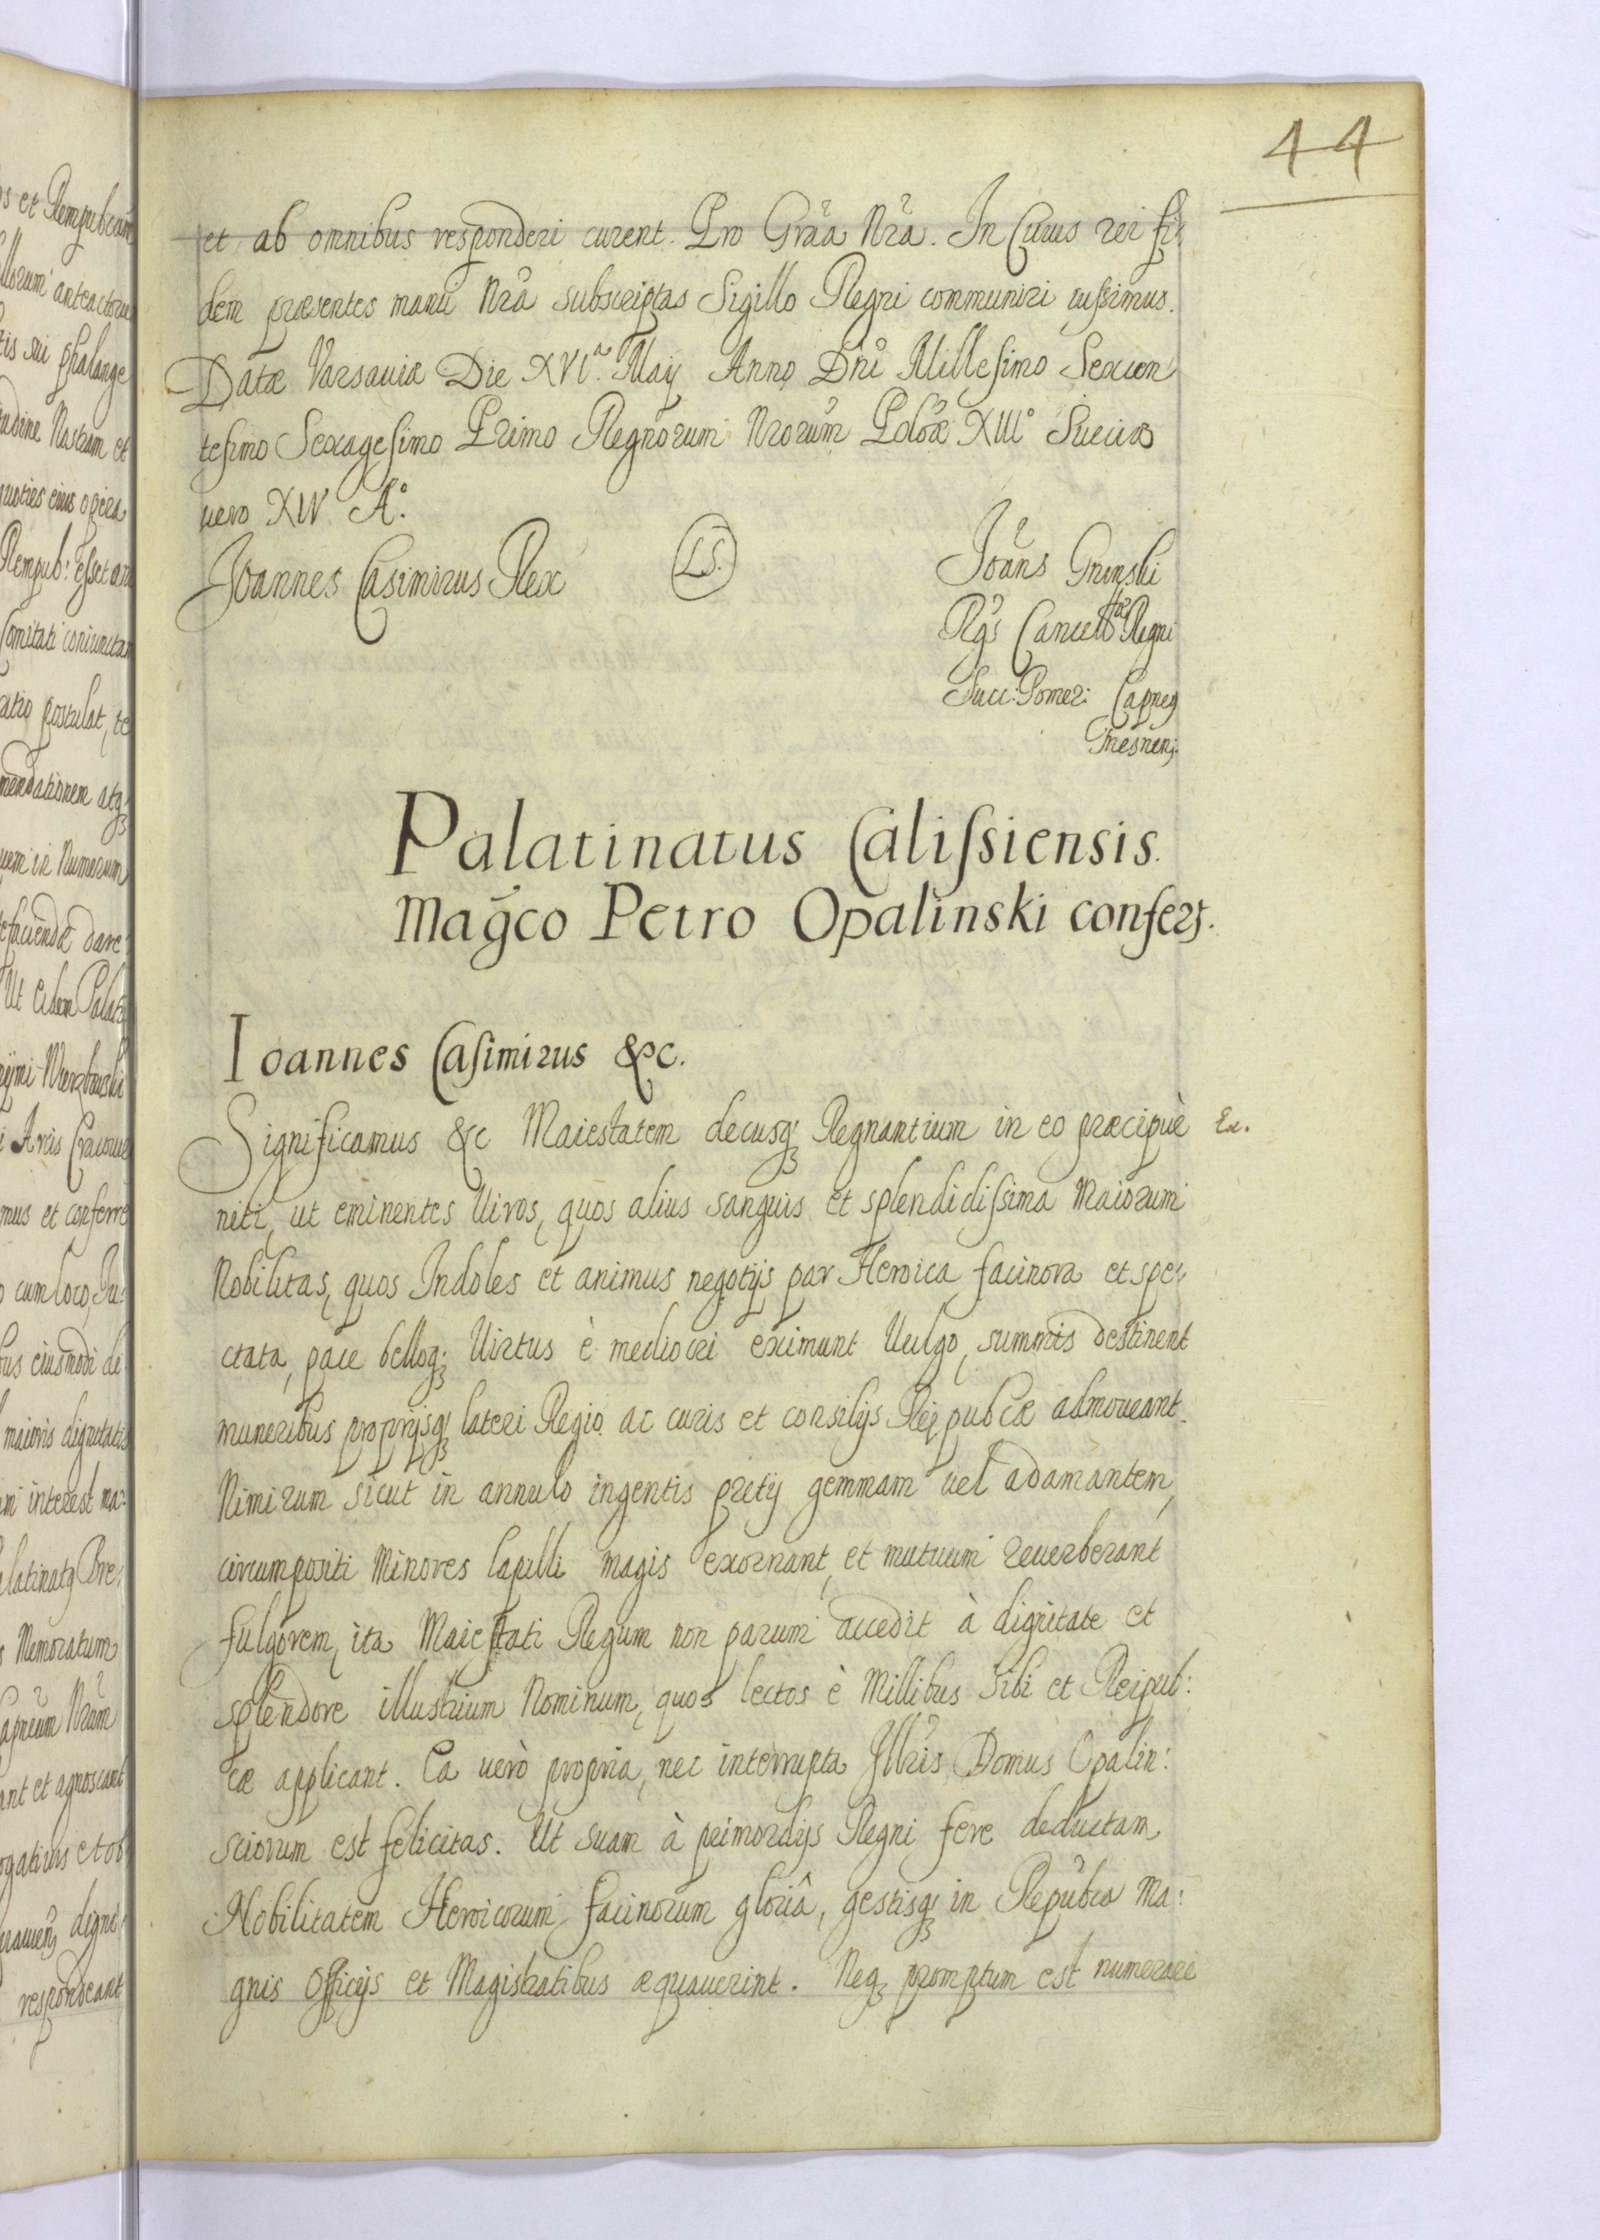 44
et ab omnibus responderi curent. Pro Gr̃a Nr̃a. In Cuius rei fi:
dem præsentes manu Nr̃a subscriptas Sigillo Regni communiri iussimus.
Datæ Varsaviæ Die XVIa. May Anno Dñi Millesimo Sexcen
tesimo Sexagesimo Primo Regnorum Nrorum Polõæ XIIIo Sueciæ
uero XIV Ao.
Joannes Casimirus Rex
L.S.
Joãns Gninski
Rg̃s Cancellariæ Regni
Succ: Pomer: Capneg
Gnesnen:
Palatinatus Calissiensis.
Mag̃co Petro Opalinski confert.
Ioannes Casimirus &c.
Significamus &c Maiestatem decusq; Regnantium in eo præcipuè
Ex.
niti, ut eminentes Viros, quos altus sanguis et splendidissima Maiorum
Nobilitas, quos Indoles et animus negotijs par Heroica facinora et spe:
ctata, pace belloq; Virtus è mediocri eximunt Vulgo, summis destinent
muneribus proprijsq; lateri Regio ac curis et consilijs Reipubcæ admoueant.
Nimirum sicut in annulo ingentis pretij gemmam vel adamantem,
circumpositi Minores lapilli magis exornant, et mutuum reuerberant
fulgorem, ita Maiestati Regum non parum accedit à dignitate et
splendore illustrium Nominum, quos lectos è Millibus Sibi et Reipub:
cæ applicant. Ea uerò propria, nec interrupta Illr̃is Domus Opalin:
sciorum est felicitas. Ut suam à primordijs Regni fere deductam
Nobilitatem Heroicorum facinorum gloriâ, gestisq; in Repubca Ma:
gnis Officijs et Magistratibus æquauerint. Neq; promptum est numerare